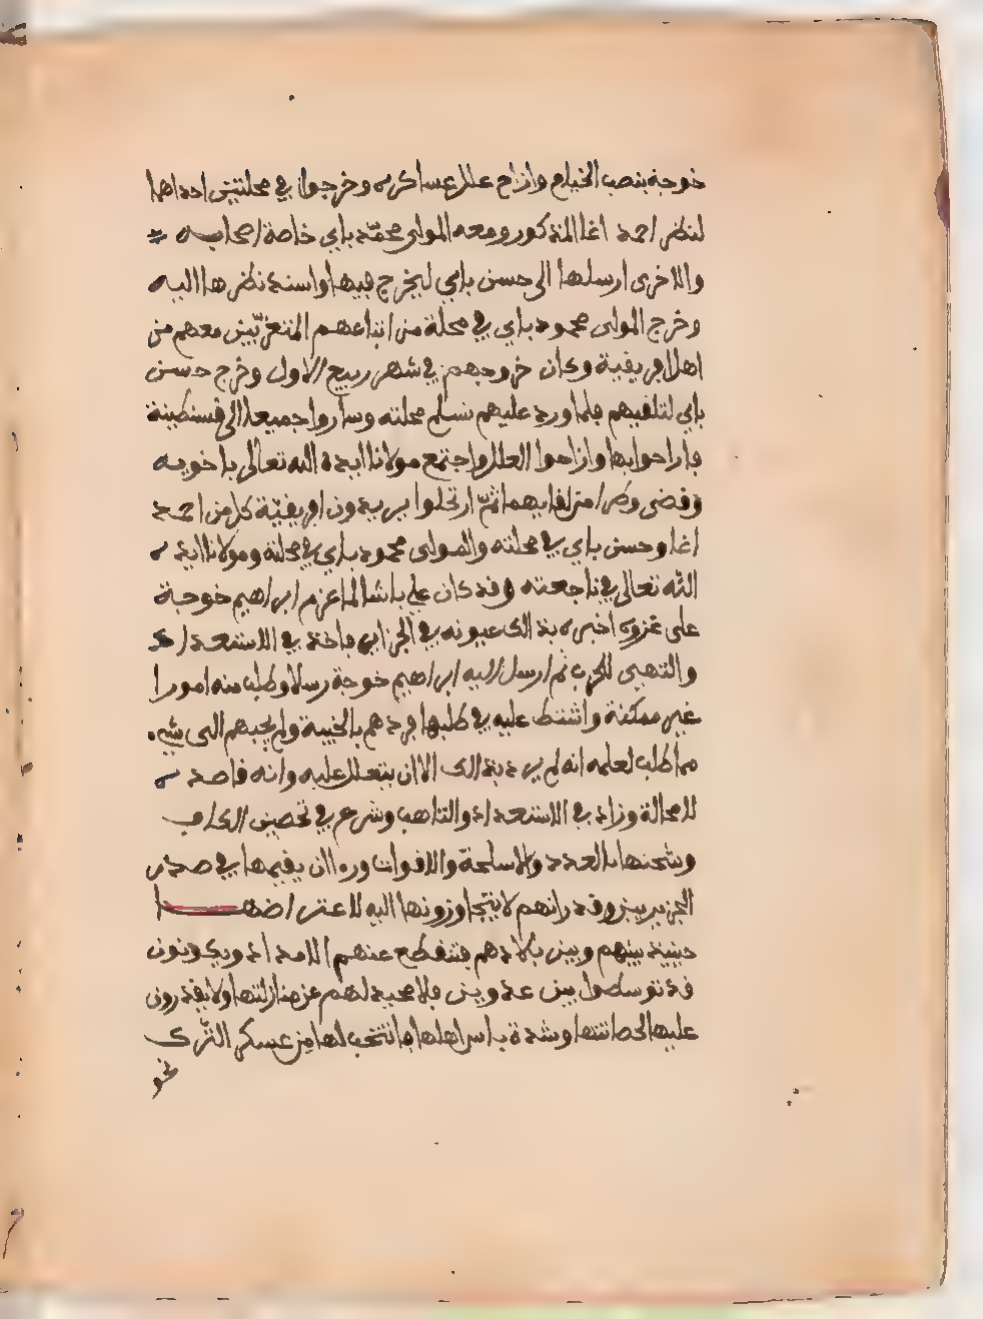 خوجة بنصب الخيام وازاح علل عساكره وخرجوا في محلتين احداهما
لنظر احمد اغا المذكور ومعه المولى محمد باي خاصة اصحابه
والاخرى ارسلها الى حسن باي ليخرج فيها واسند نظرها اليه
وخرج المولى محمود باي في محلة من اتباعهم المتغربين معهم من
اهل افريقية وكان خروجهم في شهر ربيع الاول وخرج حسن
باي لتلقيهم فلما ورد عليهم تسلم محلته وساروا جميعا الى قسنطينة
فاراحوا بها وازاحوا العلل واجتمع مولانا ايده الله تعالى باخويه
وقضى وطرا من لقايهما ثمّ ارتحلوا يريدون افريقيّة كل من احمد
اغا وحسن باي في محلته والمولى محمود باي في محلة ومولانا ايده
الله تعالى في ناجعته وقد كان علي باشا لما عزم ابراهيم خوجة
على غزوه اخبره بذالك عيونه في الجزاير فاخذ في الاستعداد
والتهيى للحرب ثم ارسل اليه ابراهيم خوجة رسلا وطلب منه امورا
غير ممكنة واشتط عليه في طلبها فردهم بالخيبة ولم يجبهم الى شيء
مما طلب لعلمه انه لم يرد بذالك الا ان يتعلل عليه وانه قاصده
لا محالة وزاد في الاستعداد والتاهب وشرع في تحصين الكاف
وشحنها بالعدد والاسلحة والاقوات وراى ان يقيمها في صدر
الجزيريين وقدر انهم لا يتجاوزونها اليه لاعتراضها
حينيذ بينهم وبين بلادهم فتنقطع عنهم الامداد ويكونون
قد توسطوا بين عدوين فلا محيد لهم عن منازلتها ولا يقدرون
عليها لحصانتها وشدة باس اهلها فانتخب لها من عسكر التّرك
نحو